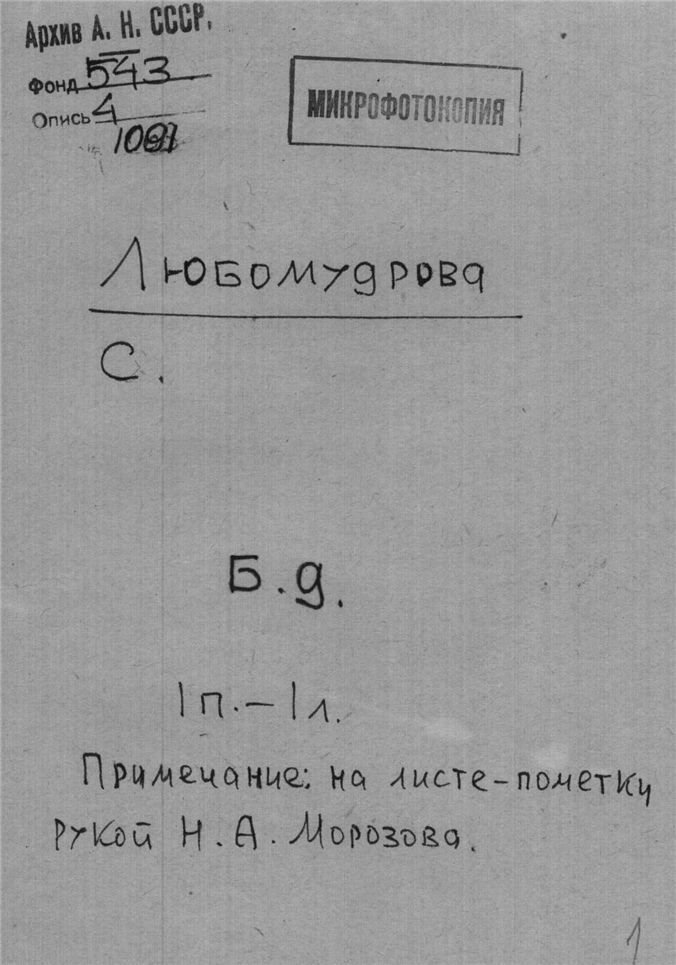 Архив А. Н. СССР.
Фонд 543
Опись 4
МИКРОФОТОКОПИЯ
Любомудрова
С.
Б.д.
1п.-1л.
Примечание: на листе-пометки
рукой Н.А. Морозова.
1